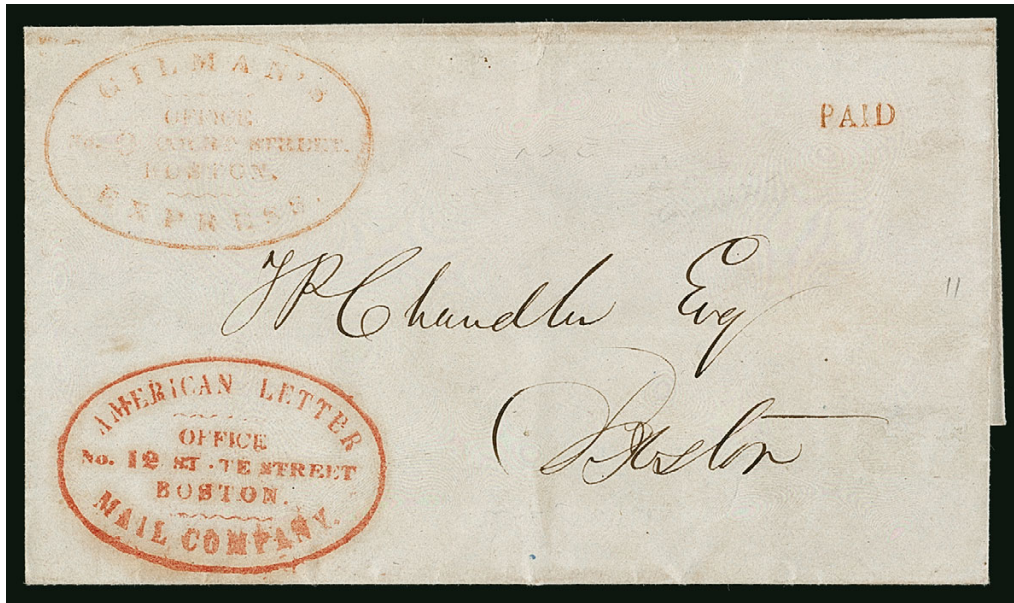 GILMAN'S
OFFICE
No. 9 COURT STREET.
BOSTON.
EXPRESS.
PAID
J P Chandler Esq
Boston
11
AMERICAN LETTER
OFFICE
No. 12 ST TE STREET
BOSTON.
MAIL COMPANY.